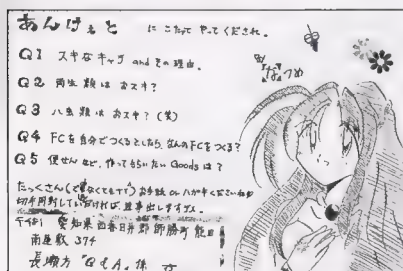 あんけぇと に こたえて やって くだされ。
Q1 スキなキャラ and その理由。
Q2 両生類は おスキ?
Q3 ハ虫類は おスキ?(笑)
Q4 FCを自分でつくるとしたら、なんのFCをつくる?
Q5 便せんなど、作ってもらいたい Goods は?
たっくさん(でなくてもイイ)お手紙 or ハガキくださいね
切手同封していただければ、返事出しますョん。
愛知県西春日井郡師勝町
南屋敷 374
長瀬方 "Q&A" 係
なつめ